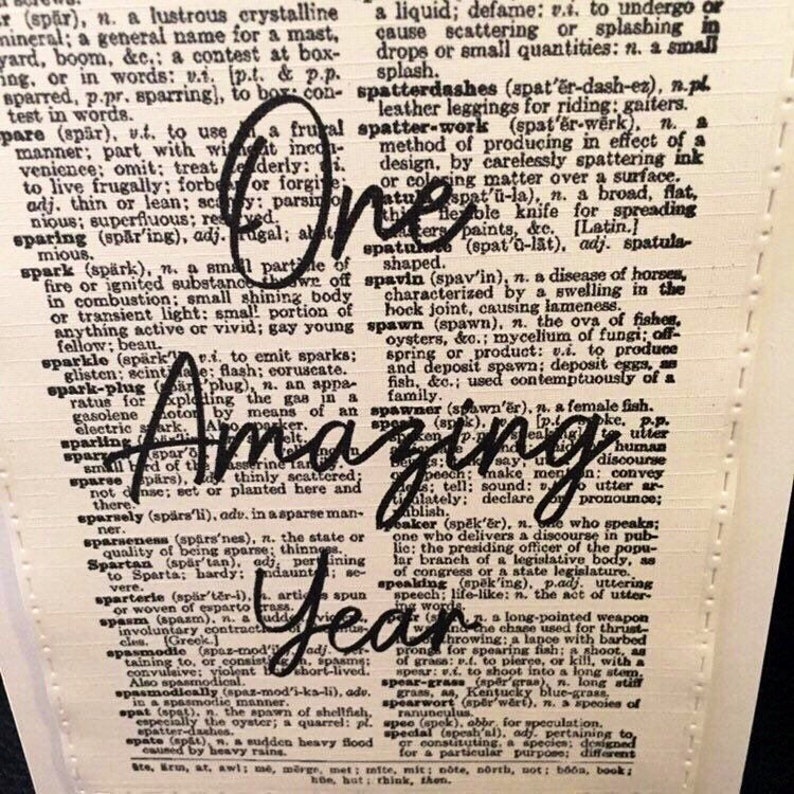 One
Amazing
Year
r (spär), n. a lustrous crystalline
mineral; a general name for a mast,
yard, boom, &c.; a contest at box-
ing, or in words: v.i. [p.t. & p.p.
sparred, p.pr. sparring], to box: con-
test in words.
pare (spär), v.t. to use in a frugal
manner; part with without incon-
venience; omit; treat tenderly: v.i.
to live frugally; forbear or forgive:
adj. thin or lean; scanty; parsimo-
nious; superfluous; reserved.
sparing (spãr'ing), adj. frugal; abste-
mious.
spark (spärk), n. a small particle of
fire or ignited substance thrown off
in combustion; small shining body
or transient light: small portion of
anything active or vivid; gay young
fellow; beau.
sparkle (spärk'l), v.i. to emit sparks;
glisten; scintillate; flash; coruscate.
spark-plug (spärk'plug), n. an appa-
ratus for exploding the gas in a
gasolene motor by means of an
electric spark. Also sparker.
sparling
small bird of the passerine family.
sparse (spärs), adj. thinly scattered;
not dense; set or planted here and
there.
sparsely (spärs'li), adv. in a sparse man-
ner.
sparseness (spärs'nes), n. the state or
quality of being sparse; thinness.
Spartan (spär'tan), adj. pertaining
to Sparta; hardy; undaunted; se-
vere.
sparterie (spär'tẽr-i), n. articles spun
or woven of esparto grass.
spasm (spazm), n. a sudden, violent
involuntary contraction of muscles.
[Greek.]
spasmodic (spaz-mod'ik), adj. per-
taining to, or consisting in, spasms;
convulsive; violent but short-lived.
Also spasmodical.
spasmodically (spaz-mod'i-ka-li), adv.
in a spasmodic manner.
spat (spat), n. the spawn of shellfish,
especially the oyster; a quarrel: pl.
spatter-dashes.
spate (spāt), n. a sudden heavy flood
caused by heavy rains.
a liquid; defame: v.i. to undergo or
cause scattering or splashing in
drops or small quantities: n. a small
splash.
spatterdashes (spat'ẽr-dash-ez), n.pl.
leather leggings for riding; gaiters.
spatter-work (spat'ẽr-wẽrk), n. a
method of producing in effect of a
design, by carelessly spattering ink
or coloring matter over a surface.
spatula (spat'ū-la), n. a broad, flat,
thin, flexible knife for spreading
plasters, paints, &c. [Latin.]
spatulate (spat'ū-lāt), adj. spatula-
shaped.
spavin (spav'in), n. a disease of horses,
characterized by a swelling in the
hock joint, causing lameness.
spawn (spawn), n. the ova of fishes,
oysters, &c.; mycelium of fungi; off-
spring or product: v.i. to produce
and deposit spawn; deposit eggs, as
fish, &c.; used contemptuously of a
family.
spawner (spawn'ẽr), n. a female fish.
speak (spēk), v.i. [p.t. spoke, p.p.
spoken, p.pr. speaking], to utter
words; say; utter discourse
speech; make mention; convey
ideas; tell; sound: v.t. to utter ar-
ticulately; declare or pronounce;
publish.
speaker (spēk'ẽr), n. one who speaks;
one who delivers a discourse in pub-
lic; the presiding officer of the popu-
lar branch of a legislative body, as
of congress or a state legislature.
speaking (spēk'ing), p.adj. uttering
speech; life-like: n. the act of utter-
ing words.
n. a long-pointed weapon
used in war and the chase used for thrust-
ing or throwing; a lance with barbed
prongs for spearing fish; a shoot, as
of grass: v.t. to pierce, or kill, with a
spear: v.i. to shoot into a long stem.
spear-grass (spēr'gras), n. long stiff
grass, as, Kentucky blue-grass.
spearwort (spēr'wẽrt), n. a species of
ranunculus.
spec (spek), abbr. for speculation.
special (spesh'al), adj. pertaining to
or constituting, a species; designed
for a particular purpose; different
āte, ärm, at, awl; mē, mẽrge, met; mīte, mit; nōte, nôrth, not; bōōn, book;
hūe, hut; think, then.